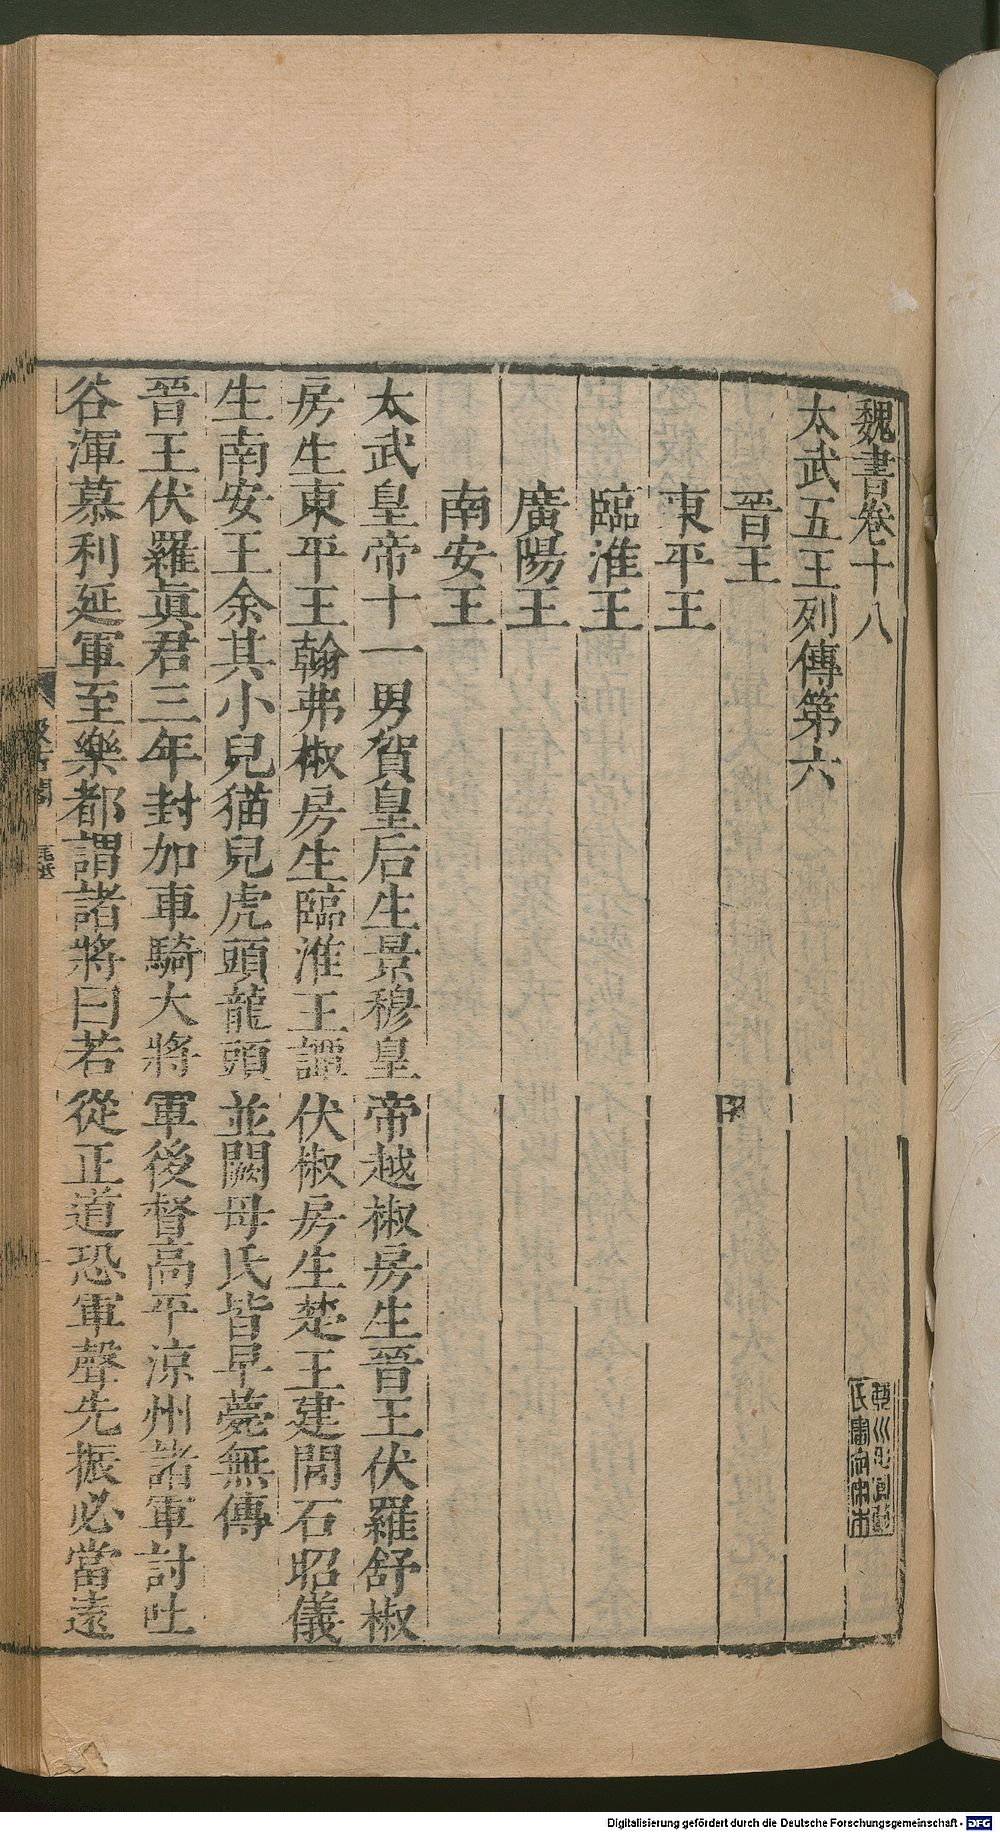 魏書卷十八
太武五王列傳第六
晉王
東平王
臨淮王
廣陽王
南安王
太武皇帝十一男賀皇后生景穆皇帝越椒房生晉王伏羅舒椒
房生東平王翰弗椒房生臨淮王譚伏椒房生楚王建閭石昭儀
生南安王余其小兒猫兒虎頭龍頭並闕母氏皆早薨無傳
晉王伏羅眞君三年封加車騎大將軍後督高平涼州諸軍討吐
谷渾慕利延軍至樂都謂諸將曰若從正道恐軍聲先振必當遠
Digitalisierung gefördert durch die Deutsche Forschungsgemeinschaft - DFG